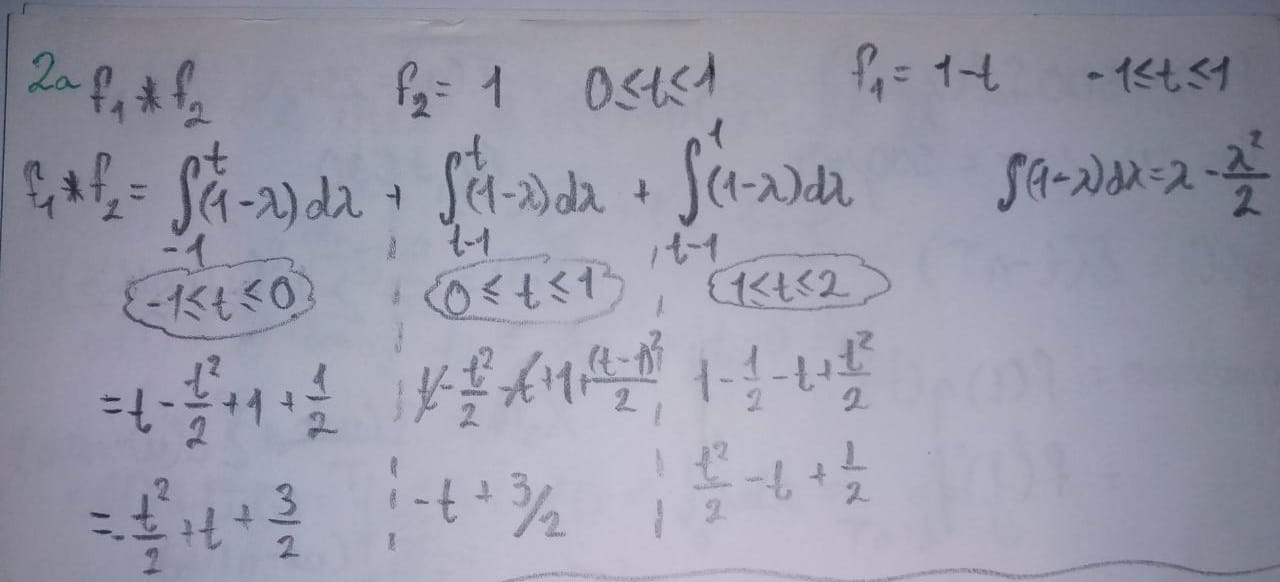 2a f₁ * f₂ f₂ = 1 0≤t≤1 f₁ = 1-t -1≤t≤1
f₁ * f₂ = ∫_{-1}^{t} (1-λ) dλ + ∫_{t-1}^{t} (1-λ) dλ + ∫_{t-1}^{1} (1-λ) dλ ∫(1-λ) dλ = λ - λ²/2
-1≤t≤0 0≤t≤1 1≤t≤2
= t - t²/2 + 1 + 1/2 t - t²/2 - t + 1 + (t-1)²/2 1 - 1/2 - t + t²/2
= -t²/2 + t + 3/2 -t + 3/2 t²/2 - t + 1/2